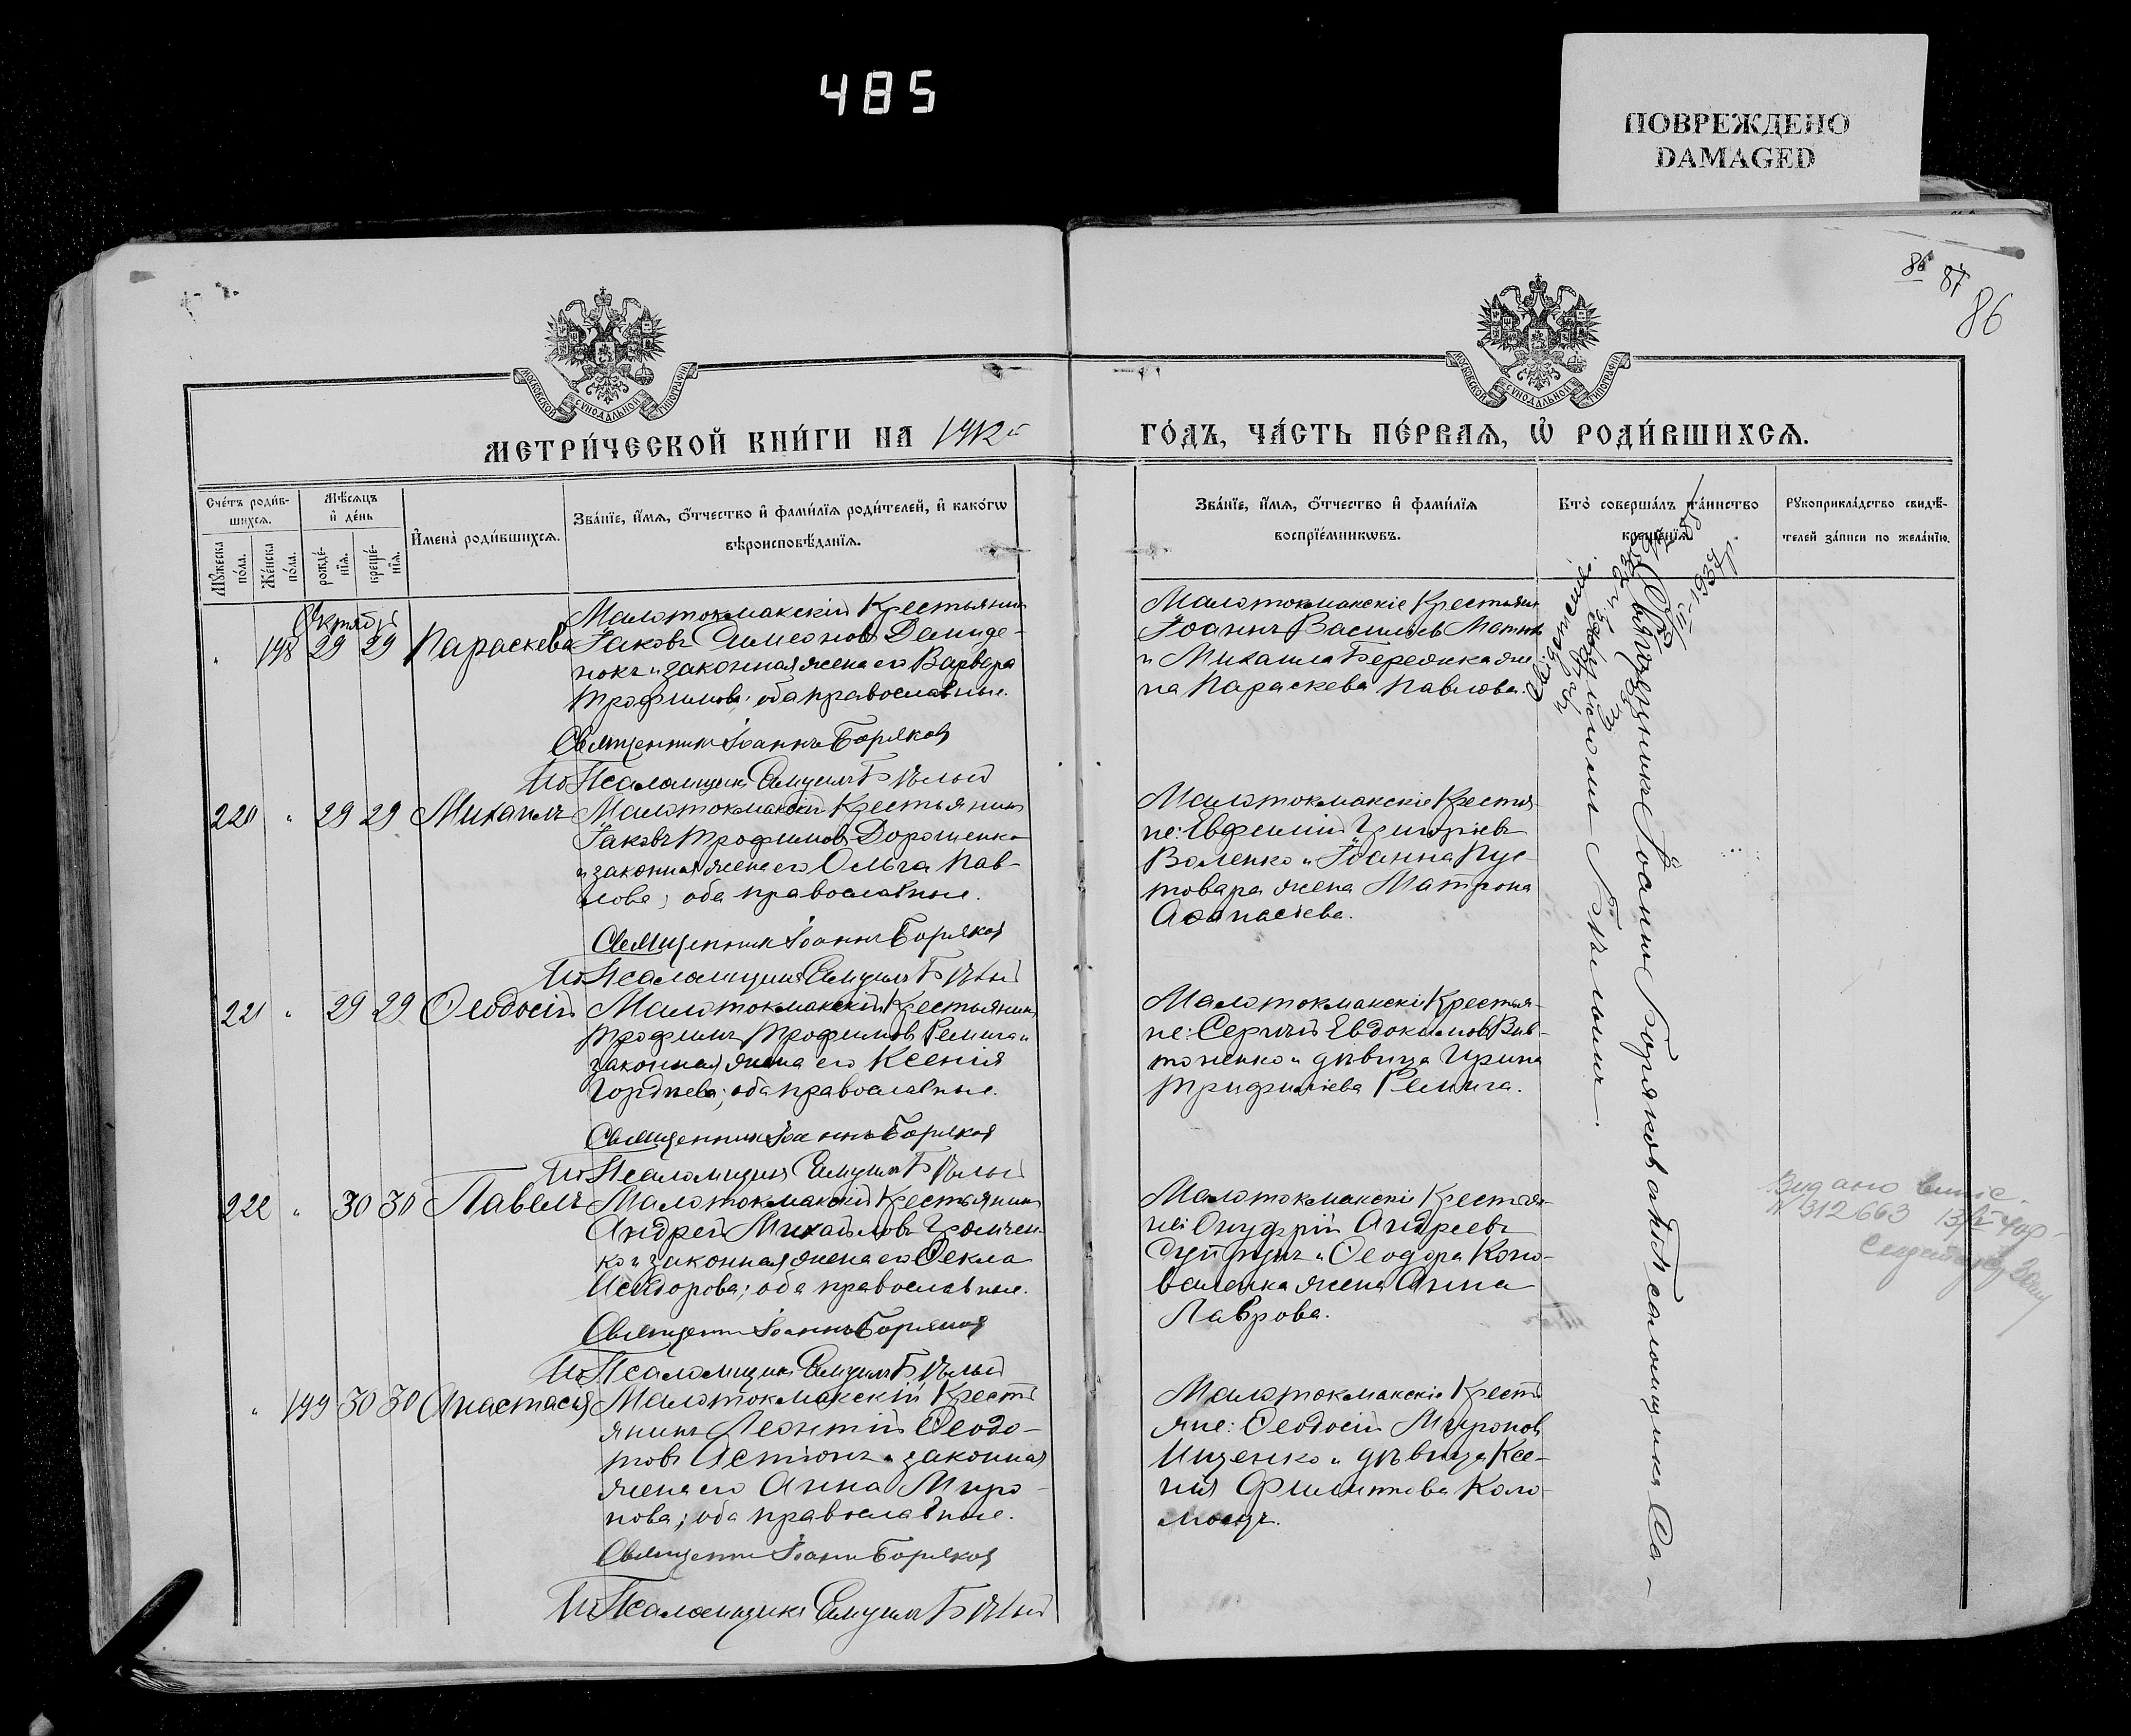 485
ПОВРЕЖДЕНО
DAMAGED
86 87
86
МОСКОВСКОЙ СѴНОДАЛЬНОЙ ТИПОГРАФІИ
МОСКОВСКОЙ СѴНОДАЛЬНОЙ ТИПОГРАФІИ
МЕТРИ́ЧЕСКОЙ КНИ́ГИ НА 1912й
ГО́ДЪ, ЧА́СТЬ ПЕ́РВАѦ, Ѡ҆ РОДИ́ВШИХСѦ.
Сче́тъ роди́в-
шихсѧ.
Мꙋ́жеска по́ла.
Же́нска по́ла.
Мѣ́сѧцъ
и҆ де́нь
рожде́-
нїѧ.
креще́-
нїѧ.
И҆мена̀ роди́вшихсѧ.
Зва́нїе, и҆́мѧ, ѻ҆́тчество и҆ фами́лїѧ роди́телей, и҆ како́гѡ
вѣроисповѣ́данїѧ.
Зва́нїе, и҆́мѧ, ѻ҆́тчество и҆ фами́лїѧ
воспрїе́мникѡвъ.
Кто̀ соверша́лъ та́инство
креще́нїѧ.
Рꙋкоприкла́дство свидѣ́-
телей за́писи по жела́нїю.
Октябрь
" 198 29 29 Параскева
Малотокмакскій Крестьянинъ
Іаковъ Симеоновъ Демиде-
нокъ и законная жена его Варвара
Трофимова; оба православные.
Священникъ Іоаннъ Боряковъ
Ио Псаломщика Самуилъ Бѣлый
Малотокмакскіе Крестьяне
Іоаннъ Васильев
и Михаила же-
на Параскева Павлова.
220 " 29 29 Михаилъ
Малотокмакскій Крестьянинъ
Іаковъ Трофимовъ Дорошенко
и законная жена его Ольга Пав-
лова; оба православные.
Священникъ Іоаннъ Боряковъ
Ио Псаломщика Самуилъ Бѣлый
Малотокмакскіе Крестья-
не: Евфимій Григоріевъ
Воленко и Іоанна Пус-
товара жена Матрона
Аѳанасіева.
221 " 29 29 Ѳеодосій
Малотокмакскій Крестьянинъ
Трофимъ Трофимовъ Ремига и
законная жена его Ксенія
Гордѣева; оба православные.
Священникъ Іоаннъ Боряковъ
Ио Псаломщика Самуилъ Бѣлый
Малотокмакскіе Крестья-
не: Сергій Евдокимовъ Вив-
тоненко и дѣвица Ирина
Трифиліева Ремига.
222 " 30 30 Павелъ
Малотокмакскій Крестьянинъ
Андрей Михайловъ Громчен-
ко и законная жена его Ѳекла
Исидорова; оба православные.
Священникъ Іоаннъ Боряковъ
Ио Псаломщика Самуилъ Бѣлый
Малотокмакскіе Крестья-
не: Онуфрій Андреевъ
Супрунъ и Ѳеодора Коно-
валенка жена Анна
Лаврова.
" 199 30 30 Анастасія
Малотокмакскій Кресть
янинъ Леонтій Ѳеодо-
товъ Астіонъ и законная
жена его Анна Миро-
нова; оба православные.
Священникъ Іоаннъ Боряковъ
Ио Псаломщика Самуилъ Бѣлый
Малотокмакскіе Кресть
яне: Ѳеодосій Мироновъ
Ищенко и дѣвица Ксе-
нія Филиппова Коло-
моецъ.
Священникъ Іоаннъ Боряковъ съ Псаломщикомъ Са-
муиломъ Бѣлымъ.
1937
Видано випис.
N 312663